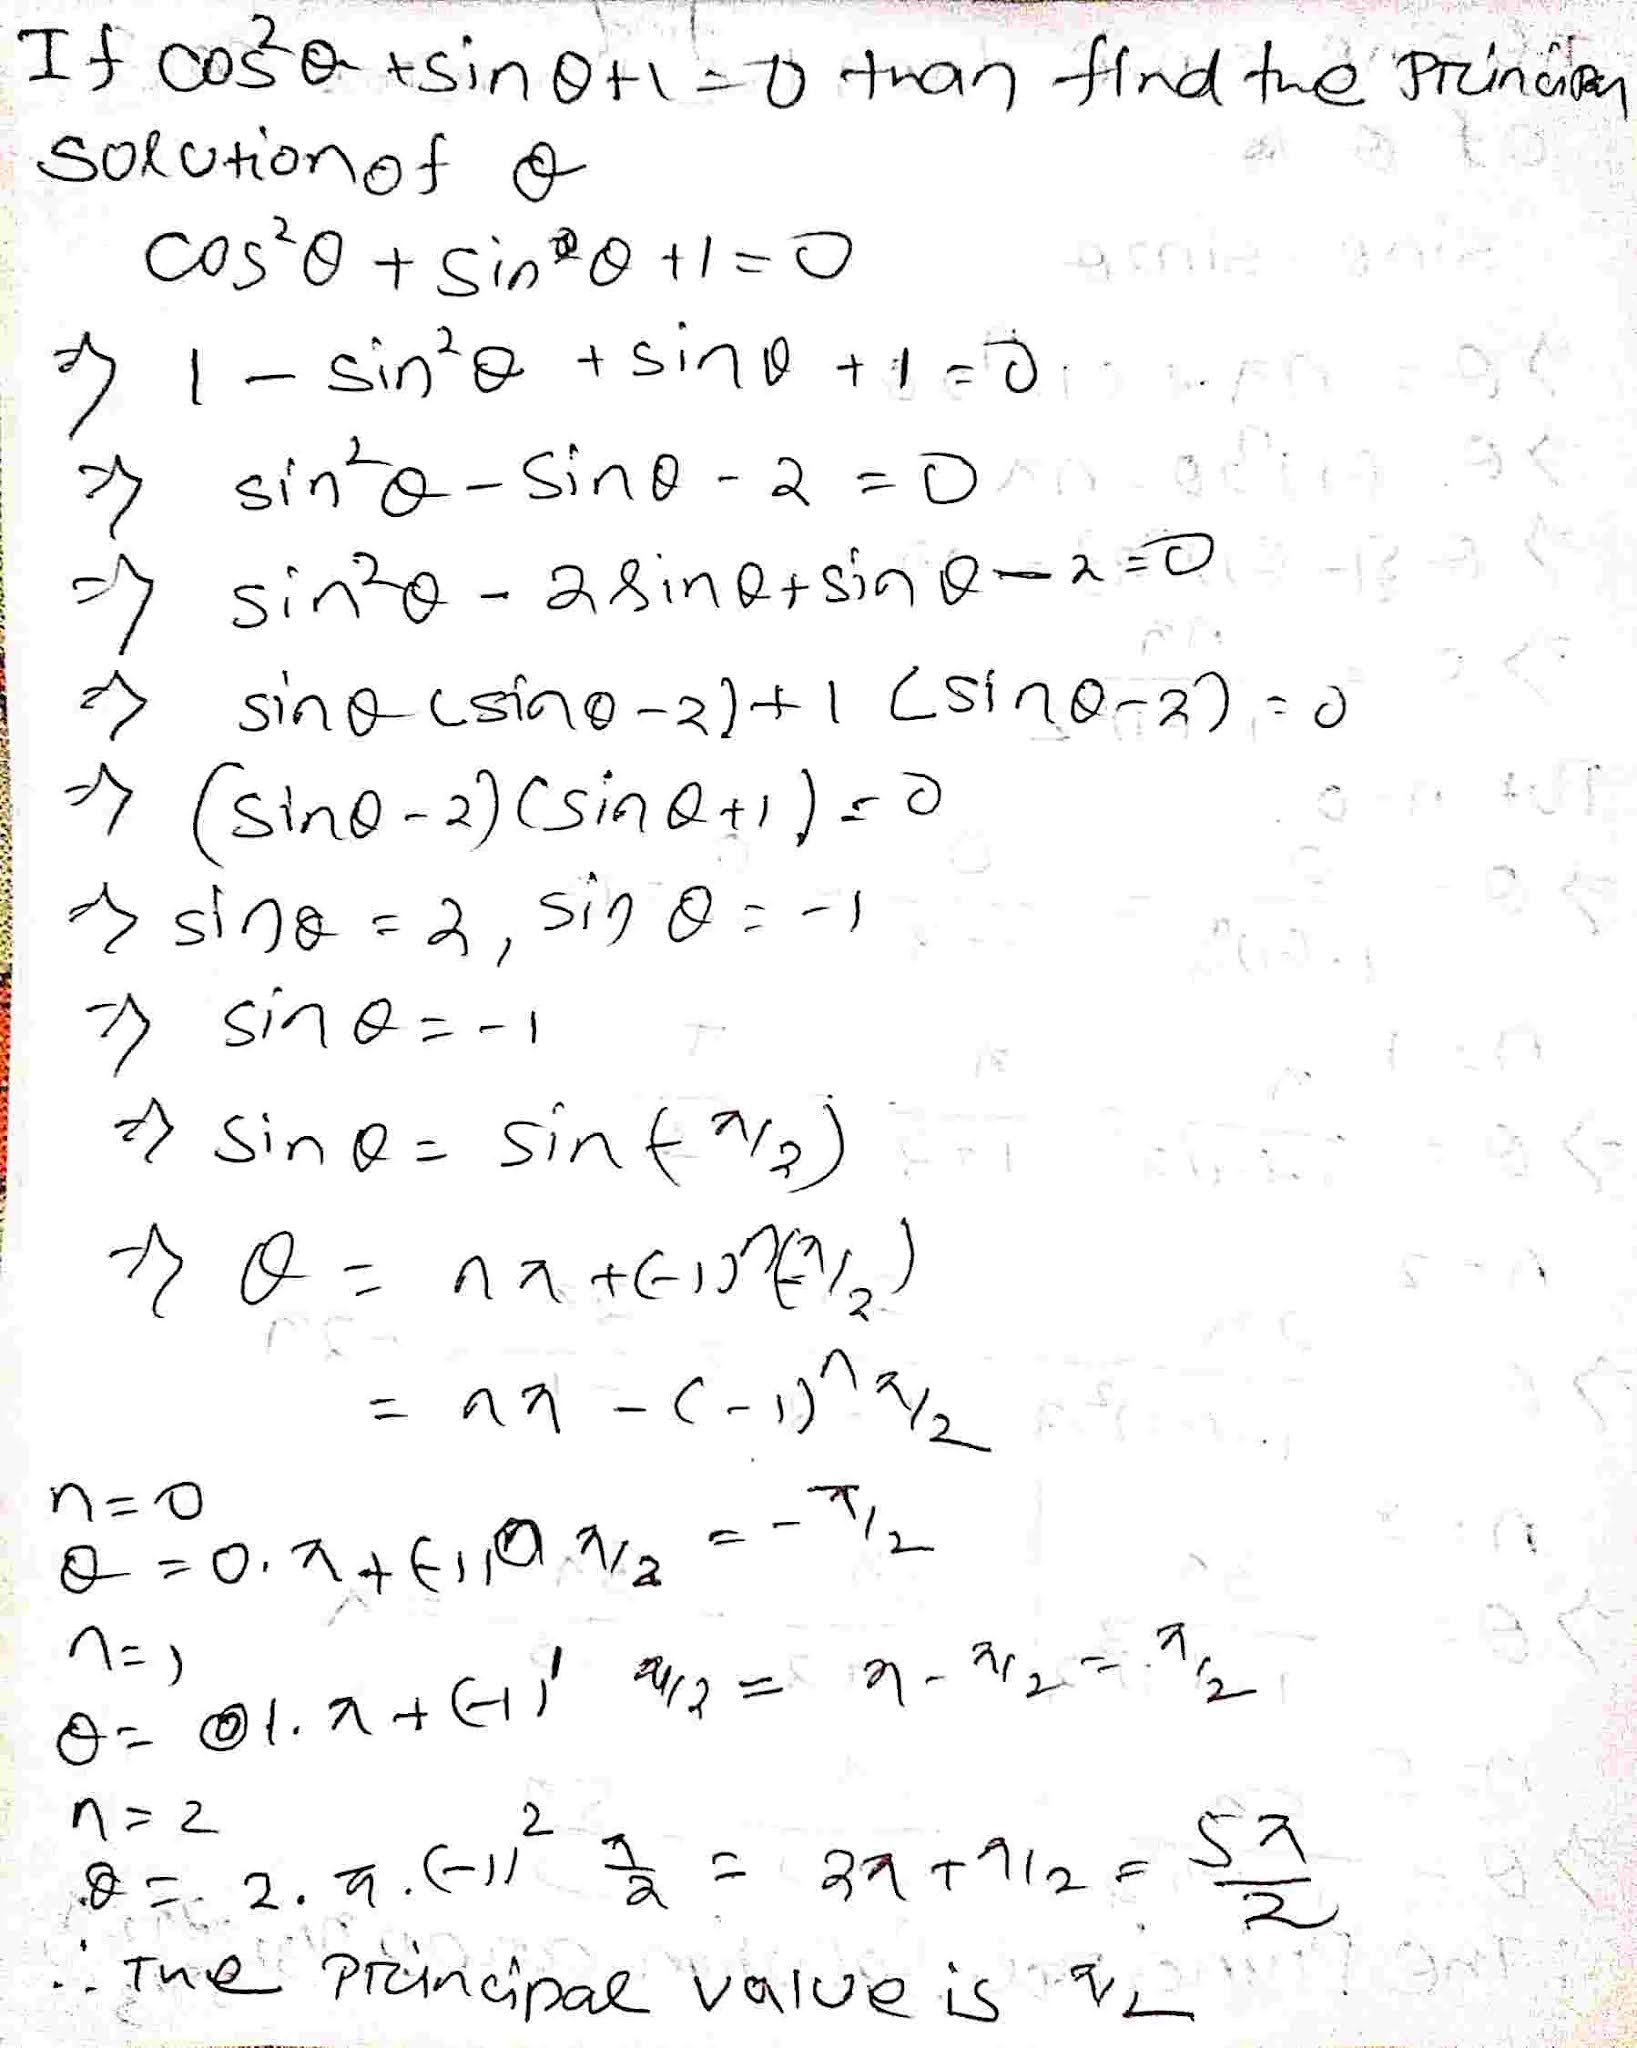 If cos²θ + sinθ+1=0 than find the
solution of θ
cos²θ + sinθ +1=0
⇒ 1 - sin²θ + sinθ + 1 = 0
⇒ sin²θ - sinθ - 2 = 0
⇒ sin²θ - 2sinθ + sinθ - 2 = 0
⇒ sinθ (sinθ-2)+1 (sinθ-2) = 0
⇒ (sinθ-2)(sinθ+1) = 0
⇒ sinθ = 2, sinθ = -1
⇒ sinθ = -1
⇒ sinθ = sin(-π/2)
⇒ θ = nπ + (-1)ⁿ(-π/2)
= nπ - (-1)ⁿ π/2
n=0
θ = 0.π + (-1)⁰ π/2 = -π/2
n=1
θ = 1.π + (-1)¹ π/2 = π - π/2 = π/2
n=2
θ = 2.π.(-1)² π/2 = 2π + π/2 = 5π/2
∴ The principal value is